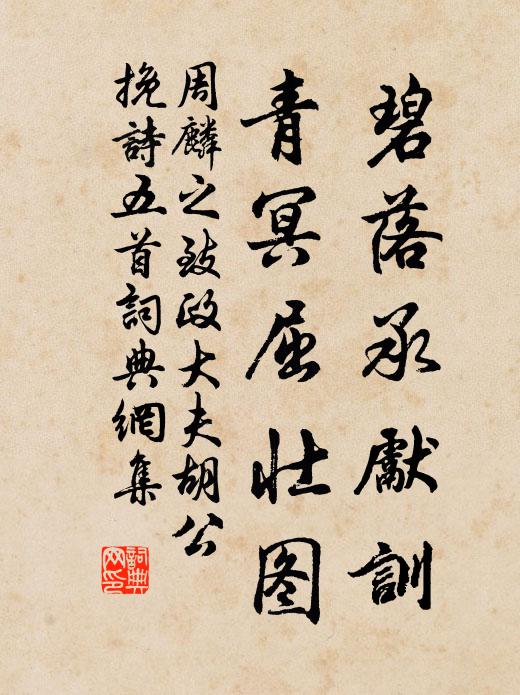 碧落承獻訓
青冥屈壮图
周麟之致政大夫胡公
挽詩五首詞典網集
詞典
网印